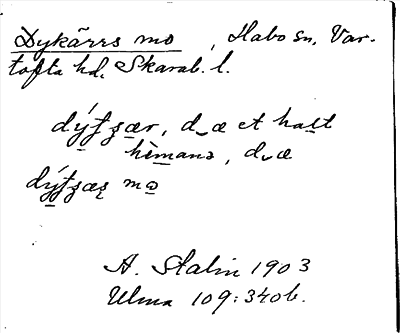 Dykärrs mo, Habo sn, Var-
tofta hd, Skarab. l.
dýʄʒær, d‿æ et halt
hèmanə, d‿æ
dýʄʒæʂ mo
A. Stalin 1903
Ulma 109:340b.